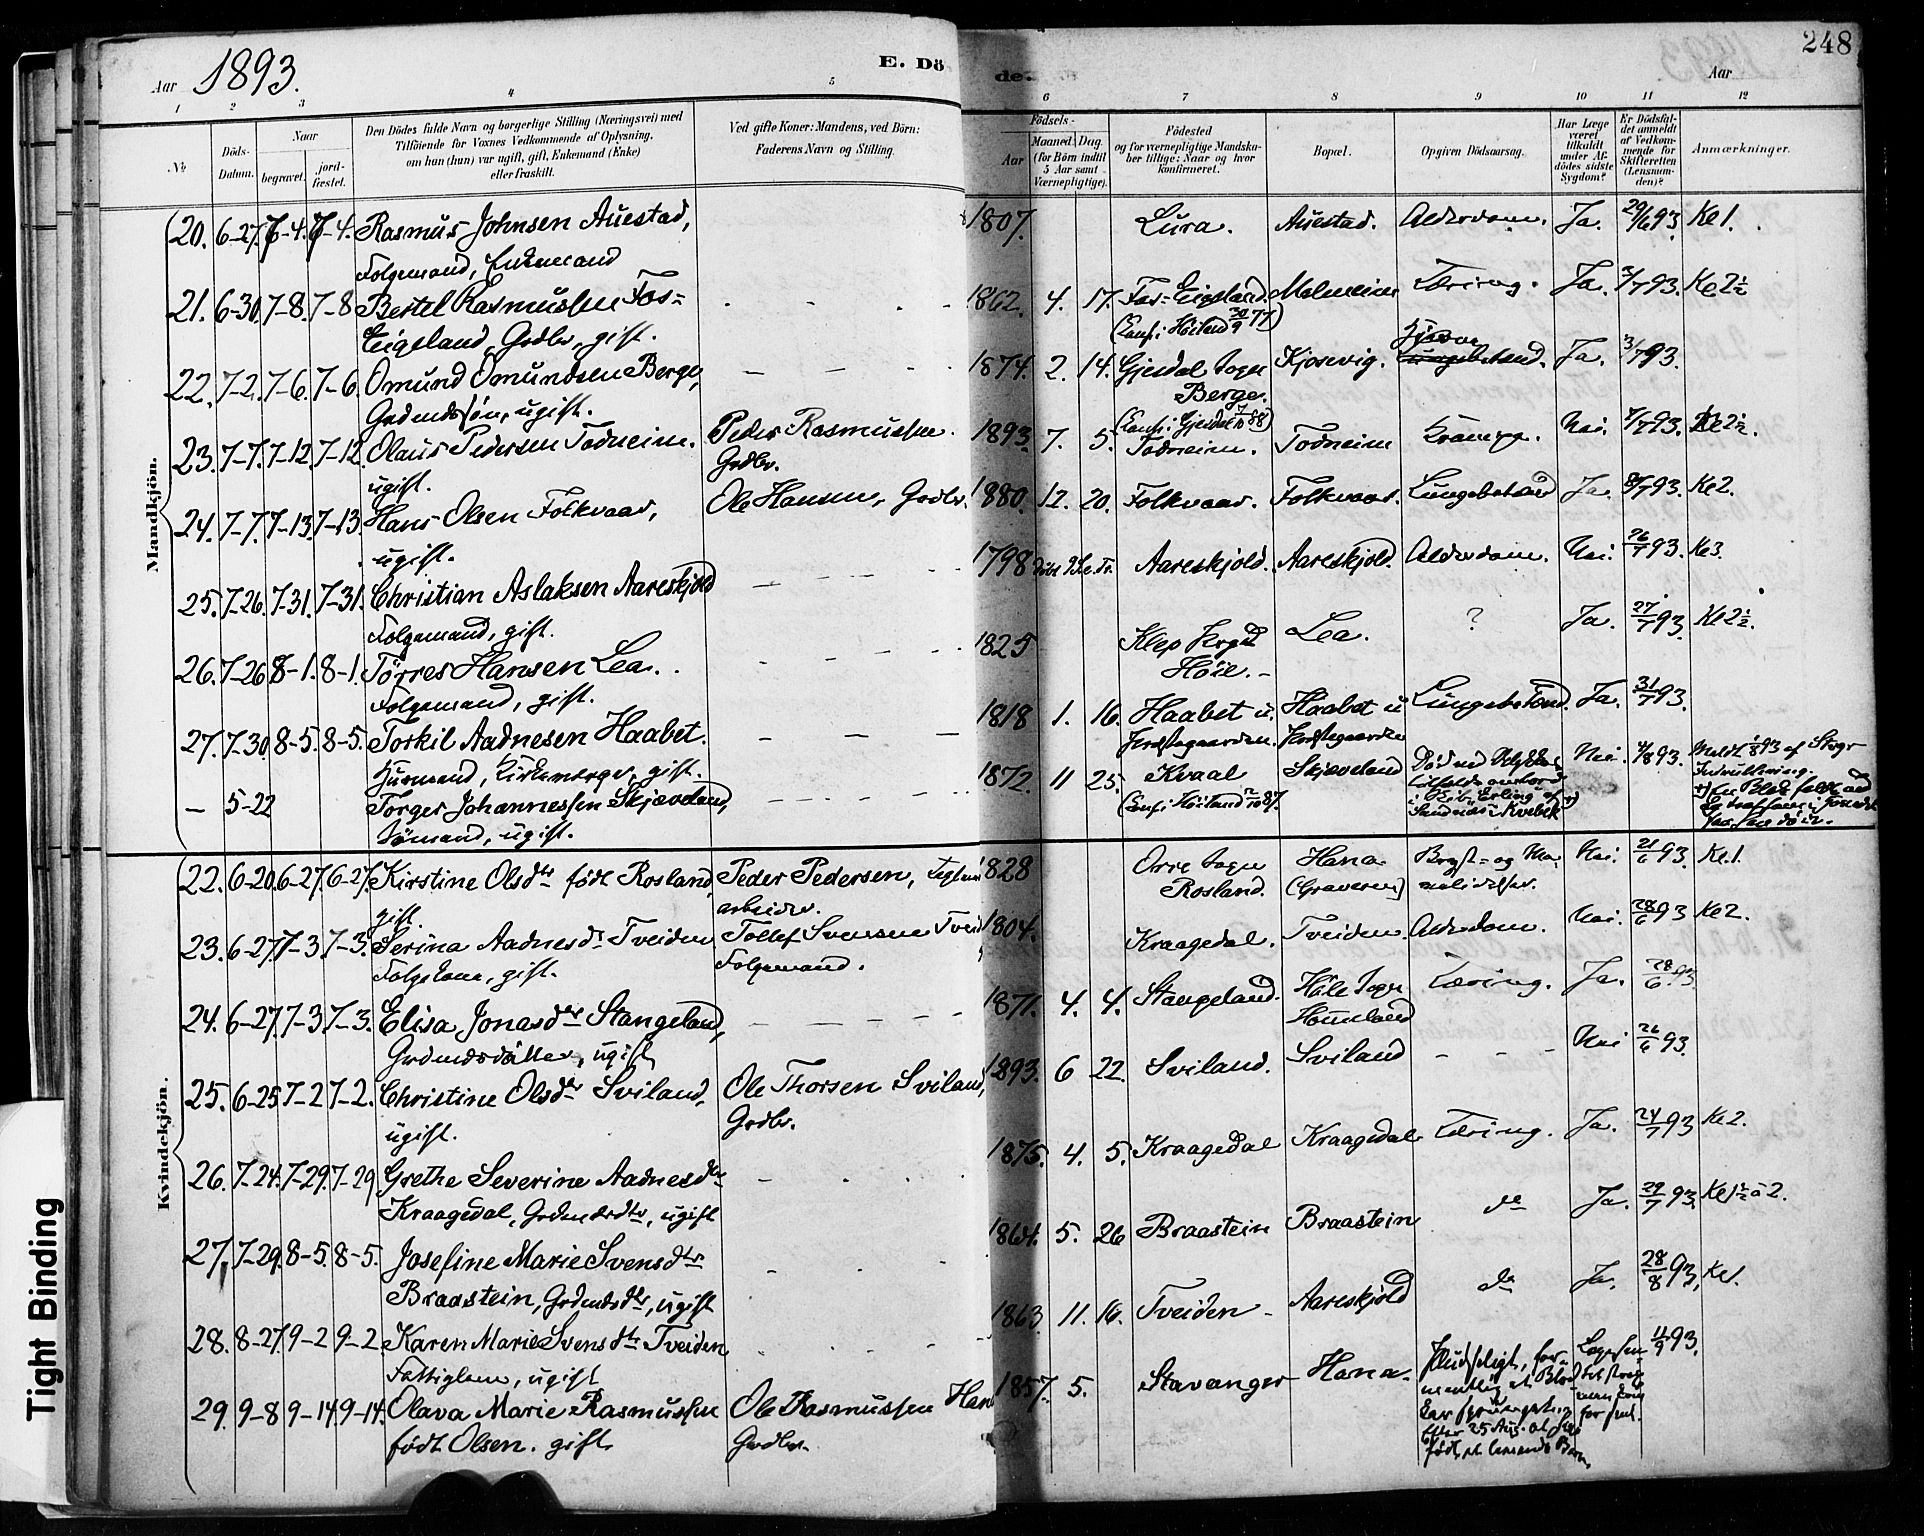 Aar 1893.
E. Dö
de.
Aar
248
1 2 3 4 5 6 7 8 9 10 11 12
№
Döds-Datum.
Naar
begravet.
jord-fæstet.
Den Dödes fulde Navn og borgerlige Stilling (Næringsvei) med
Tilföiende for Voxnes Vedkommende af Oplysning,
om han (hun) var ugift, gift, Enkemand (Enke)
eller fraskilt.
Ved gifte Koner: Mandens, ved Börn:
Faderens Navn og Stilling.
Födsels-
Aar
Maaned. Dag.
(for Börn indtil
5 Aar samt
Værnepligtige).
Födested
og for værnepligtige Mandska-
ber tillige: Naar og hvor
konfirmeret.
Bopæl.
Opgiven Dödsaarsag.
Har Læge
været
tilkaldt
under Af-
dödes sidste
Sygdom?
Er Dödsfal-
det anmeldt
af Vedkom-
mende for
Skifteretten
(Lensman-
den)?
Anmærkninger.
Mandkjön.
20. 6-27. 7-4. 7-4. Rasmus Johnsen Auestad, 1807. Lura. Auestad. Alderdom. Ja. 29/6 93. Kl 1.
Folgemand, Enkemand
21. 6-30. 7-8. 7-8 Bertel Rasmussen Fos- 1862. 4. 17. Fos-Eigeland. Malmeim Tæring. Ja. 3/7 93. Kl 2½
Eigeland, Grdbr, gift. (Conf. i Höiland 30/9 77)
22. 7-2. 7-6. 7-6. Omund Omundsen Berge, 1874. 2. 14. Gjesdal Sogn Kjosevig. Ja. 3/7 93.
Grdmdssön, ugift. Berge.
(Conf. i Gjesdal 88)
23. 7-7. 7-12. 7-12. Olaus Pedersen Todneim. Peder Rasmussen. 1893. 7. 5. Todneim. Todneim Krampe. Nei. 7/7 93. Kl 2½.
ugift. Grdbr.
24. 7-7. 7-13. 7-13. Hans Olsen Folkvaar, Ole Hansen, Grdbr. 1880. 12. 20. Folkvaar. Folkvaar. Lungebetænd Ja. 8/7 93. Kl 2.
ugift.
25. 7-26. 7-31. 7-31. Christian Aslaksen Aareskjold 1798 Aareskjold. Aareskjold. Alderdom. Nei. 26/7 93. Kl 3.
Folgemand, gift.
26. 7-26 8-1. 8-1. Törres Hansen Lea. 1825 Klep Prgd Lea. ? Ja. 27/7 93. Kl 2½.
Folgemand, gift. Höie.
27. 7-30. 8-5. 8-5. Torkil Aadnesen Haabet. 1818 1. 16. Haabet u. Haabet u Lungebetænd. Ja. 31/7 93.
Husmand, Kirkeværge, gift. Prestegaarden. Prestegaarden
— 5-22 Torger Johannessen Skjæveland, 1872. 11 25. Kvaal Skjæveland Nei. 4/8 93.
Sömand, ugift. (Conf. i Höiland 87.
Kvindekjön.
22. 6-20. 6-27. 6-27. Kirstine Olsdtr födt Rosland, Peder Pedersen, 1828 Orre Sogn Hana Bryst- og Ma- Nei. 21/6 93. Kl. 1.
gift. arbeider. Rosland. (Graveren) velidelser.
23. 6-27. 7-3. 7-3. Serina Aadnesdtr Tveiden Tollef Svensen Tvei 1804. Kraagedal. Tveiden. Alderdom. Nei. 28/6 93 Kl 2.
Folgekone, gift. Folgemand.
24. 6-27. 7-3. 7-3. Elisa Jonasdtr Stangeland, 1871. 4. 4. Stangeland. Höle Sogn Tæring. Ja. 28/6 93
Grdmdsdatter, ugift Hommeland
25. 6-25 7-2 7-2. Christine Olsdtr Sviland, Ole Thorsen Sviland, 1893. 6 22. Sviland. Sviland Nei 26/6 93.
ugift. Grdbr.
26. 7-24. 7-29. 7-29 Grethe Severine Aadnesdtr 1875. 4. 5. Kraagedal Kraagedal Tæring. Ja. 24/7 93 Kl 2.
Kraagedal, Grdmdsdtr, ugift
27. 7-29. 8-5. 8-5. Josefine Marie Svensdtr 1864. 5. 26 Braastein Braastein do Ja. 29/7 93. Kl 1½ à 2.
Braastein, Grdmdsdtr, ugift
28. 8-27. 9-2 9-2. Karen Marie Svensdtr Tveiden 1863 11. 16. Tveiden Aareskjold do Ja. 28/8 93. Kl.
Fattiglem, ugift
29. 9-8 9-14 9-14. Olava Marie Rasmussen Ole Rasmussen Han 1857. 5. Stavanger Hana. Pludseligt, 11/9 93.
födt Olsen. gift. Grdbr.
Tight Binding